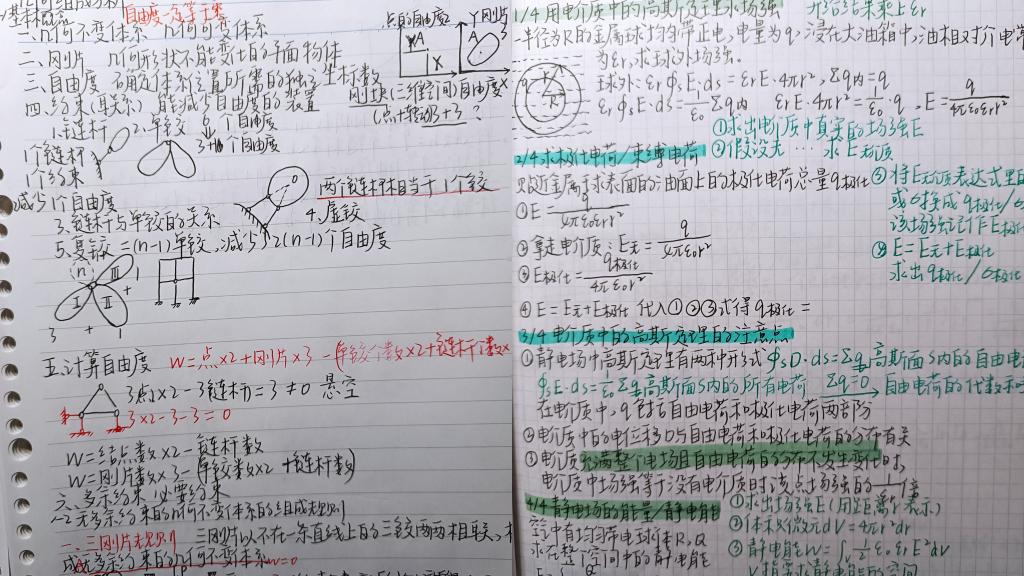 自由度
一、几何不变体系 几何可变体系
点的自由度
Y 刚片
二、刚片 几何形状不能变化的平面物体
三、自由度 确定体系位置所需的独立坐标数
刚块(三维空间)自由度
四、约束(联系) 能减少自由度的装置
(点+转动3+3)?
1.链杆 2.单铰 6个自由度
3+1个自由度
1个链杆
1个约束
减少1个自由度
两个链杆相当于1个铰
3.链杆与单铰的关系 4.虚铰
5.复铰=(n-1)单铰,减少2(n-1)个自由度
五、计算自由度 W=点×2+刚片×3-(单铰个数×2+链杆个数×
3点×2-3链杆=3≠0 悬空
3×2-3-3=0
W=结点数×2-链杆数
W=刚片数×3-(单铰数×2+链杆数)
六、多余约束 必要约束
无多余约束的几何不变体系的组成规则
三刚片规则 三刚片以不在一条直线上的三铰两两相联,
成无多余约束的几何不变体系 W=0
1/4用电介质中的高斯定理求场强
半径为R的金属球均匀带正电,电量为q,浸在大油箱中,油相对介电常
为εr,求球外场强.
球外:ε₀εr∮E·ds=ε₀εrE·4πr², Σq内=q
εr∮E·ds=1/ε₀Σq内 εrE·4πr²=1/ε₀·q, E=q/4πε₀εrr²
①求出电介质中真实的场强E
②假设无 … 求E无质
2/4求极化电荷/束缚电荷
贴近金属球表面的油面上的极化电荷总量q极化
③将E无质表达式里的
或σ换成q极化/σ
该场强记作E极化
①E=q/4πε₀εrr²
②拿走电介质:E无=q/4πε₀r²
③E极化=q极化/4πε₀r²
④E=E无+E极化
求出q极化/σ极化
④E=E无+E极化 代入①②③式得q极化=
3/4电介质中的高斯定理的注意点
①静电场中高斯定理有两种形式∮sD·ds=Σq高斯面S内的自由电
∮sE·ds=1/ε₀Σq高斯面S内的所有电荷 Σq=0 自由电荷的代数和
在电介质中,q包括自由电荷和极化电荷两部分
②电介质中的电位移D与自由电荷和极化电荷的分布有关
③电介质充满整个电场且自由电荷的分布不发生变化时,
电介质中场强等于没有电介质时该点场强的1/εr倍
4/4静电场的能量/静电能
①求出场强E(用距离r表示)
空气中有均匀带电球体R,Q
②体积微元dV=4πr²dr
求在整个空间中的静电能
③静电能W=∫½ε₀εrE²dV
V指求静电能的空间